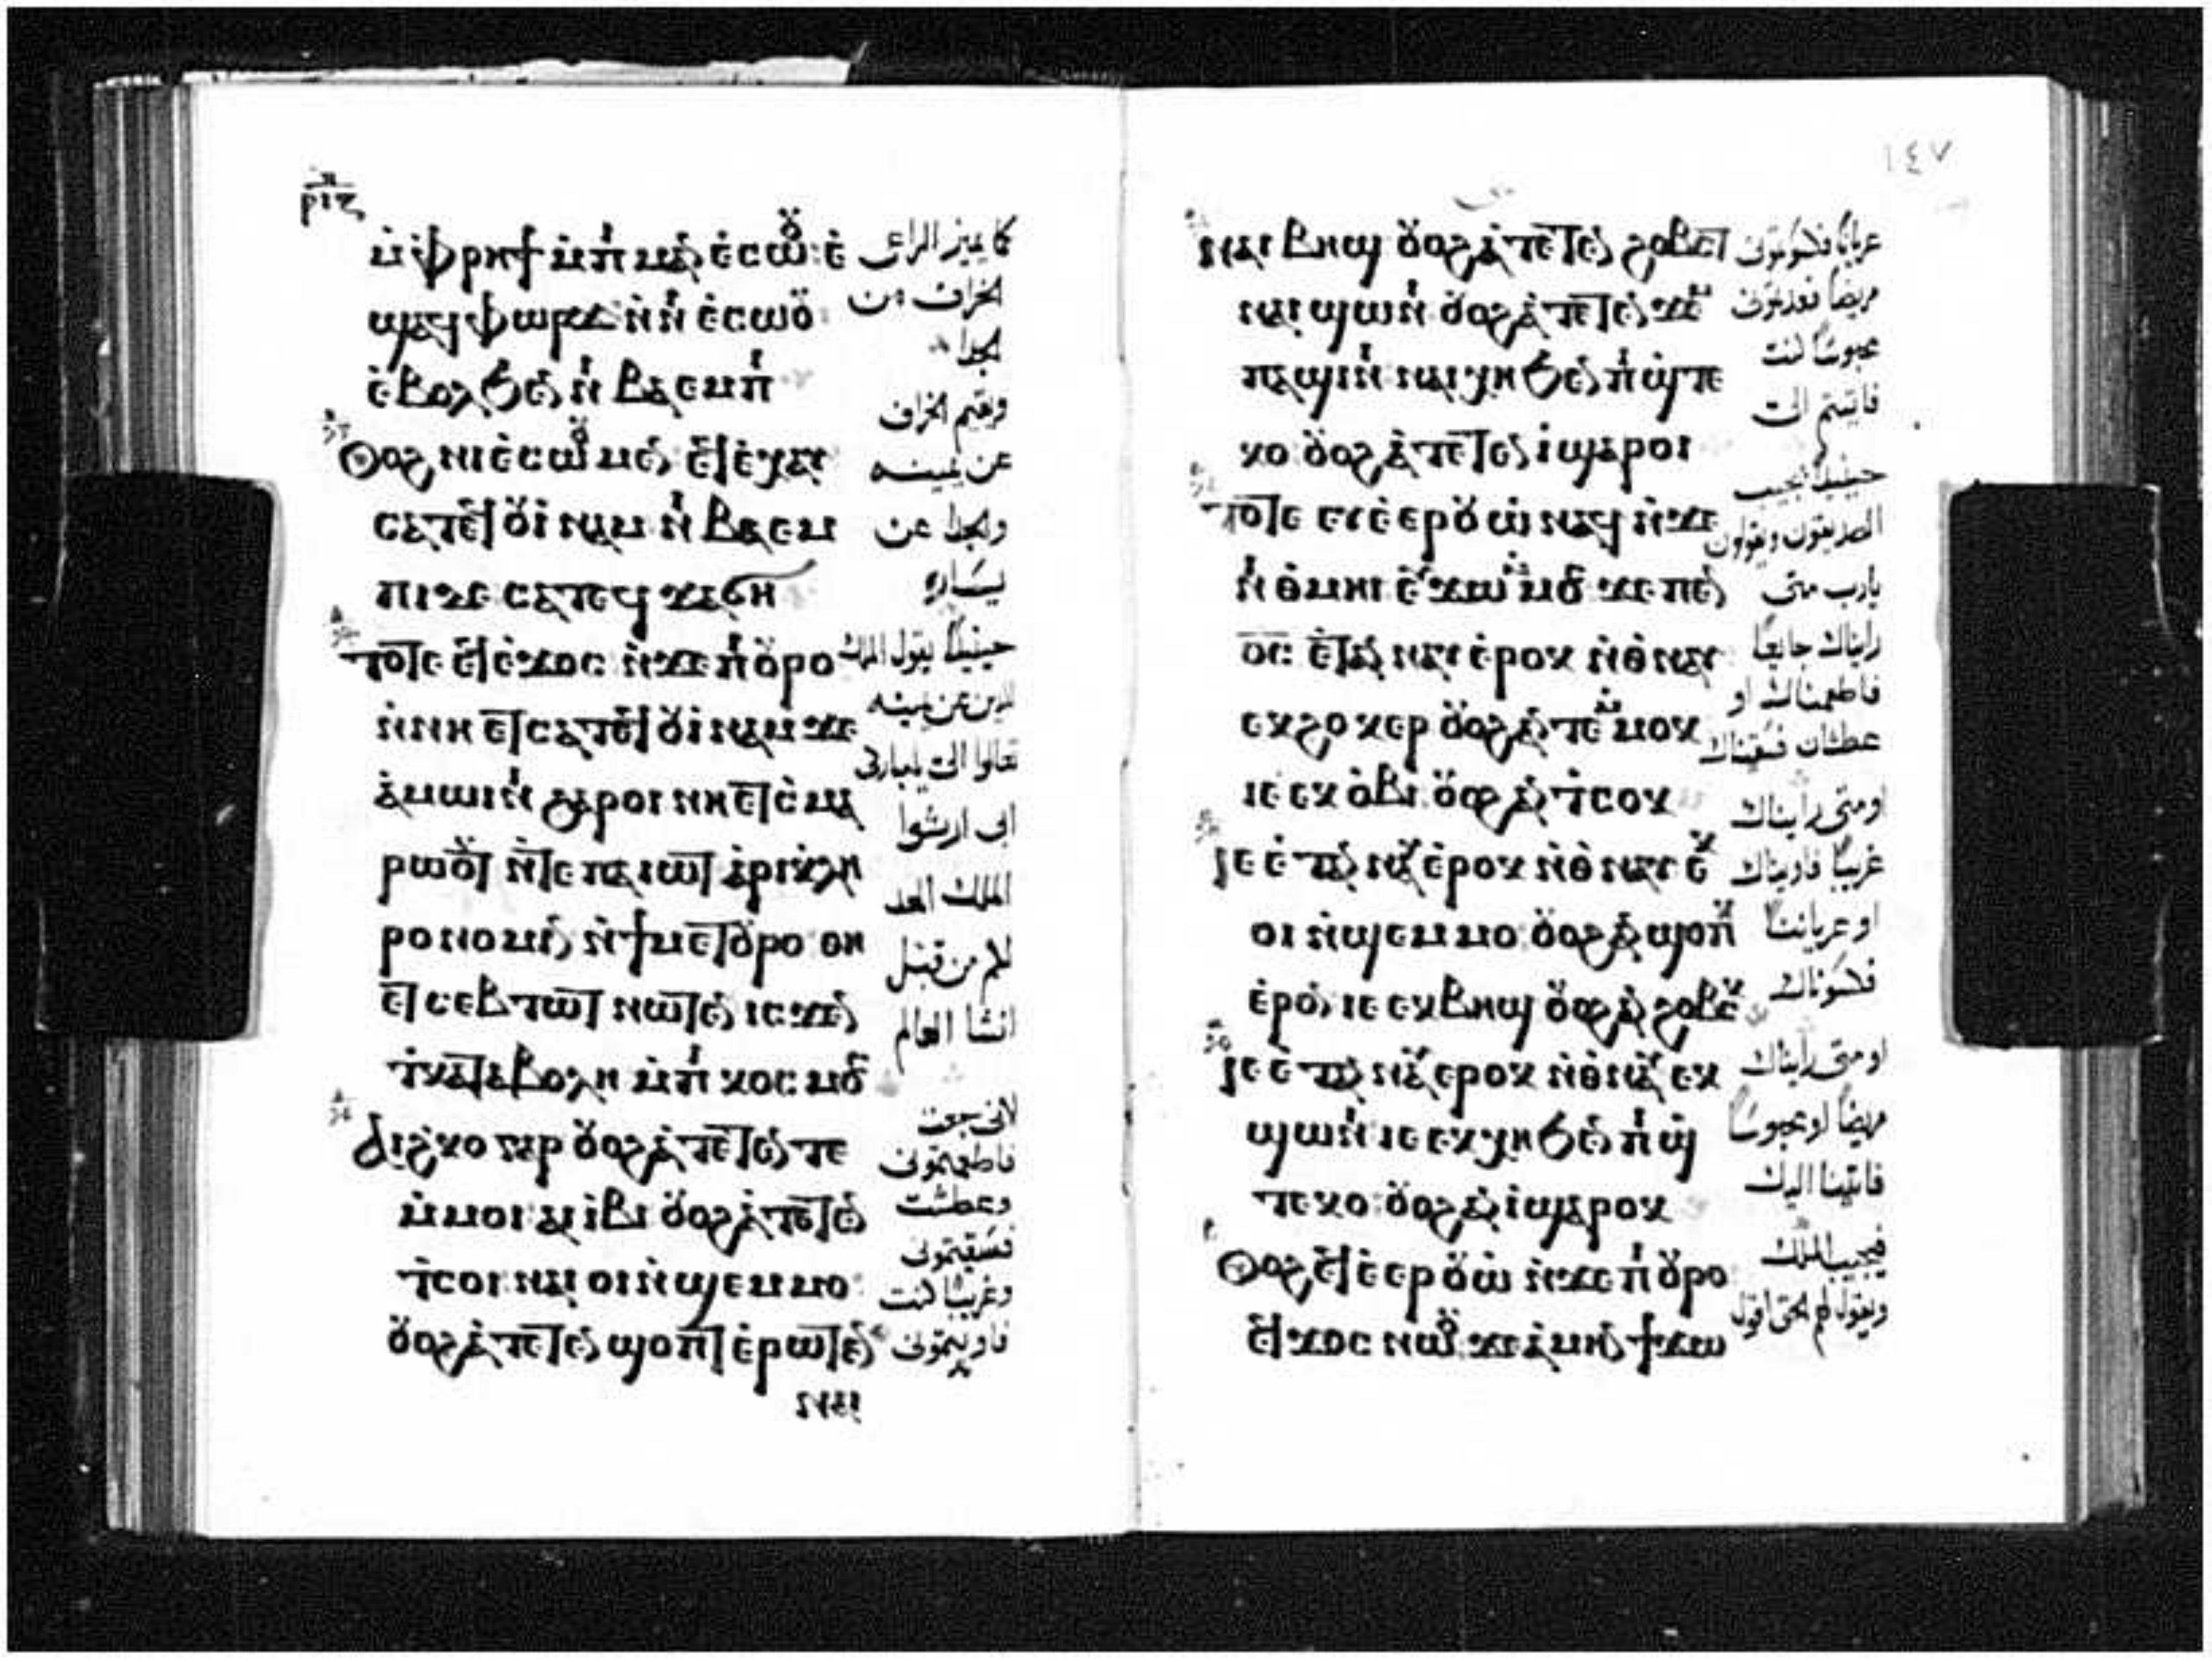 ⲣⲓⲍ
ⲙ̀ⲫⲣⲏϯ ⲙ̀ⲡ ⲙⲁ ⲉ̀ⲥⲱⲟⲩ ⲉ̀
ϣⲁϥ ⲫⲱⲣϫ ⲛ̀ⲛ ⲉ̀ⲥⲱⲟⲩ
ⲉ̀ⲃⲟⲗ ϧⲉⲛ ⲛ ⲃⲁⲉⲙⲡ
Ⲟⲩⲟϩ ⲛⲓⲉ̀ⲥⲱⲟⲩ ⲙⲉⲛ ⲉϥⲉ̀ⲭⲁⲩ
ⲥⲁⲧⲉϥⲟⲩⲓ̀ⲛⲁⲙ ⲛ ⲃⲁⲉⲙ
ⲡⲓ ⲇⲉ ⲥⲁⲧⲉϥ ϫⲁϭⲏ
ⲧⲟⲧⲉ ⲉϥⲉ̀ϫⲟⲥ ⲛ̀ϫⲉ ⲡⲟⲩⲣⲟ
ⲛ̀ⲛⲏ ⲉⲧⲥⲁⲧⲉϥⲟⲩⲓ̀ⲛⲁⲙ ϫⲉ
ⲁ̀ⲙⲱⲓⲛⲓ ϩⲁⲣⲟⲓ ⲛⲏⲉⲧⲥ̀ⲙⲁ
ⲣⲱⲟⲩⲧ ⲛ̀ⲧⲉ ⲡⲁⲓⲱⲧ ⲁ̀ⲣⲓⲕ̀ⲗⲏ
ⲣⲟⲛⲟⲙⲓⲛ ⲛ̀ϯⲙⲉⲧⲟⲩⲣⲟ ⲑⲏ
ⲉⲧ ⲥⲉⲃⲧⲱⲧ ⲛⲱⲧⲉⲛ ⲓⲥϫⲉⲛ
ⲧ̀ⲕⲁⲧⲁⲃⲟⲗⲏ ⲙ̀ⲡ ⲕⲟⲥⲙⲟⲥ
ⲁⲓϩ̀ⲕⲟ ⲅⲁⲣ ⲟⲩⲟϩ ⲁ̀ⲧⲉⲧⲉⲛ ⲧⲉ
ⲙ̀ⲙⲟⲓ ⲁⲓ ⲓ̀ⲃⲓ ⲟⲩⲟϩ ⲁ̀ⲧⲉⲧⲉⲛ
ⲧ̀ⲥⲟⲓ ⲛⲁⲓ ⲟⲓ ⲛ̀ϣⲉⲙⲙⲟ
ⲟⲩⲟϩ ⲁ̀ⲧⲉⲧⲉⲛ ϣⲟⲡⲧ ⲉ̀ⲣⲱⲧⲉⲛ
كما يميز الراعي
الخراف من
الجدا
ويقيم الخراف
عن يمينه
والجدا عن
يساره
حينيذًا يقول الملك
للذين عن يمينه
تعالوا الي يا مباركي
ابي ارثوا
الملك المعد
لكم من قبل
انشا العالم
لاني جعت
فاطعمتموني
وعطشت
فسقيتموني
وغريبًا كنت
فاويتموني
١٤٧
ⲛⲁⲓ ⲃⲏϣ ⲟⲩⲟϩ ⲁ̀ⲧⲉⲧⲉⲛ ϩⲟⲃⲥⲧ
ⲛⲁⲓ ϣⲱⲛⲓ ⲟⲩⲟϩ ⲁ̀ⲧⲉⲧⲉⲛ ϫⲉⲙ
ⲡⲁϣⲓⲛⲓ ⲛⲁⲓⲭⲏ ϧⲉⲛ ⲡ ϣ̀ⲧⲉ
ⲕⲟ ⲟⲩⲟϩ ⲁ̀ⲧⲉⲧⲉⲛ ⲓ̀ ϣⲁⲣⲟⲓ
ⲧⲟⲧⲉ ⲉⲩⲉ̀ⲉⲣⲟⲩⲱ̀ ⲛⲁϥ ⲛ̀ϫⲉ
ⲛ ⲑⲙⲏⲓ ⲉⲩϫⲱ ⲙⲙⲟⲥ ϫⲉ ⲡϭ
ⲟⲥ ⲉ̀ⲧⲁⲛ ⲛⲁⲩ ⲉ̀ⲣⲟⲕ ⲛ̀ⲑⲛⲁⲩ
ⲉⲕϩⲟⲕⲉⲣ ⲟⲩⲟϩ ⲁⲛ ⲧⲉⲙⲙⲟⲕ
ⲓⲉ ⲉⲕ ⲟ̀ⲃⲓ ⲟⲩⲟϩ ⲁⲛ ⲧ̀ⲥⲟⲕ
ⲓⲉ ⲉ̀ⲧⲁⲛ ⲛⲁⲩ ⲉ̀ⲣⲟⲕ ⲛ̀ⲑⲛⲁⲩ ⲉⲕ
ⲟⲓ ⲛ̀ϣⲉⲙⲙⲟ ⲟⲩⲟϩ ⲁⲛ ϣⲟⲡⲕ
ⲉ̀ⲣⲟⲛ ⲓⲉ ⲉⲕⲃⲏϣ ⲟⲩⲟϩ ⲁⲛ ϩⲟⲃⲥⲕ
ⲓⲉ ⲉ̀ⲧⲁⲛ ⲛⲁⲩ ⲉⲣⲟⲕ ⲛ̀ⲑⲛⲁⲩ ⲉⲕ
ϣⲱⲛⲓ ⲓⲉ ⲉⲕⲭⲏ ϧⲉⲛ ⲡ ϣ̀
ⲧⲉⲕⲟ ⲟⲩⲟϩ ⲁⲛ ⲓ̀ ϣⲁⲣⲟⲕ
Ⲟⲩⲟϩ ⲉϥⲉ̀ⲉⲣⲟⲩⲱ̀ ⲛ̀ϫⲉ ⲡⲟⲩⲣⲟ
ⲉϥϫⲟⲥ ⲛⲱⲟⲩ ϫⲉ ⲁ̀ⲙⲏⲛ ϯϫⲱ
عريانًا فكسوتموني
مريضًا فعدتموني
محبوسًا كنت
فاتيتم الي
حينيذًا يجيب
الصديقون ويقولون
يارب متى
رايناك جايعًا
فاطعمناك او
عطشان فسقيناك
او متى رايناك
غريبًا فاويناك
او عريانًا
فكسوناك
او متى رايناك
مريضًا او محبوسًا
فاتينا اليك
فيجيب الملك
ويقول لهم الحق اقول